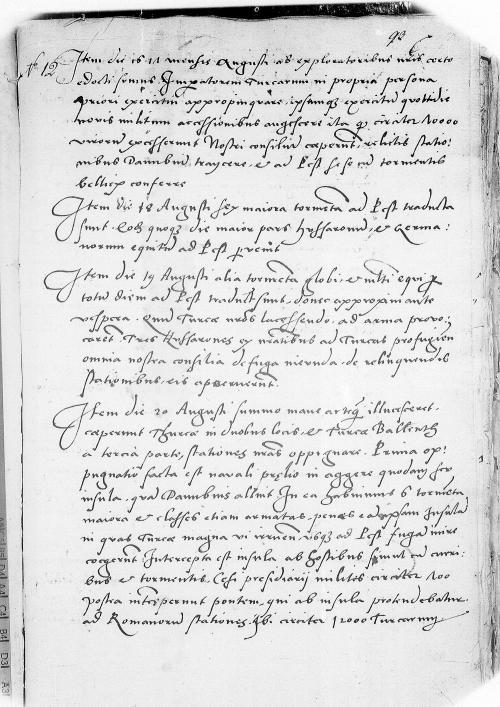 93
f 12
Item die 16 11 mensis Augusti ab exploratoribus nris certo
edocti sumus Impatorem Turcarum in propria persona
priori exercitui appropinquare, ipsumq exercitu quottidie
novis militum accessionibus augescere ita q circiter 10000
virorum excesserint Nostri consilium ceperunt, relictis statio:
nibus Danubium traycere, et ad Pest sese cu tormentis
bellicis conferre
Item die 18 Augusti sex maiora tormeta ad Pest traducta
sunt. Eode quoq die maior pars Hussaronu, et Germa:
norum equitu ad Pest pvenit
Item die 19 Augusti alia tormeta globi et multi equi p
totu diem ad Pest traducti sunt, donec appropinquante
vespera. Quu Turcae nros lacessendo, ad arma provo:
carent, Tres Hussarones ex nratibus ad Turcas profugien
omnia nostra consilia de fuga ineunda de relinquendis
stationibus, eis aperuerunt.
Item die 20 Augusti summo mane anteq illucesceret,
ceperunt Thurcae in duobus locis, et Turcae
a tercia parte, stationes nras oppugnare. Prima op:
pugnatio facta est navali prelio in aggere quodam sex
insula, qua Danubius alluit In ea habuimus 6 tormeta
maiora et classes etiam armatas, penes ipsam Insula
in quas Turcae magna vi irruen usq ad Pest fuga inire
coegerunt Intercepta est insula ab hostibus simul cu curri:
bus et tormentis. Cesi presidiarij milites circiter 100
Postea intceperunt pontem, qui ab insula protendebatur
ad Romanorum stationes, Ibi circiter 12000 Turcarum